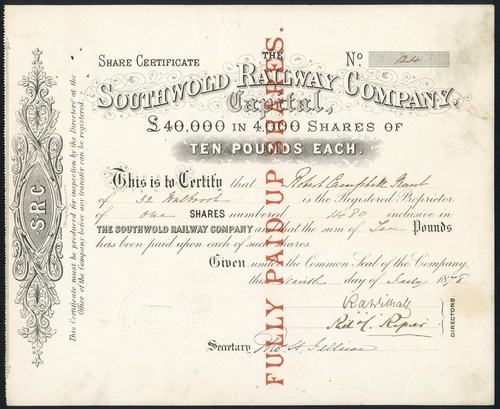 Share Certificate
No. 124
THE
SOUTHWOLD RAILWAY COMPANY.
Capital,
£40,000 IN 4,000 SHARES OF
TEN POUNDS EACH.
This is to Certify that Robert Campbell Grant
of 32 Walbrook is the Registered Proprietor
of one SHARES numbered 1480 inclusive in
THE SOUTHWOLD RAILWAY COMPANY and that the sum of Ten Pounds
has been paid upon each of such shares.
Given under the Common Seal of the Company,
this Ninth day of July 1878
DIRECTORS.
Secretary
FULLY PAID UP SHARES.
SRC
This Certificate must be produced for inspection by the Directors at the
Office of the Company before any transfer can be registered.